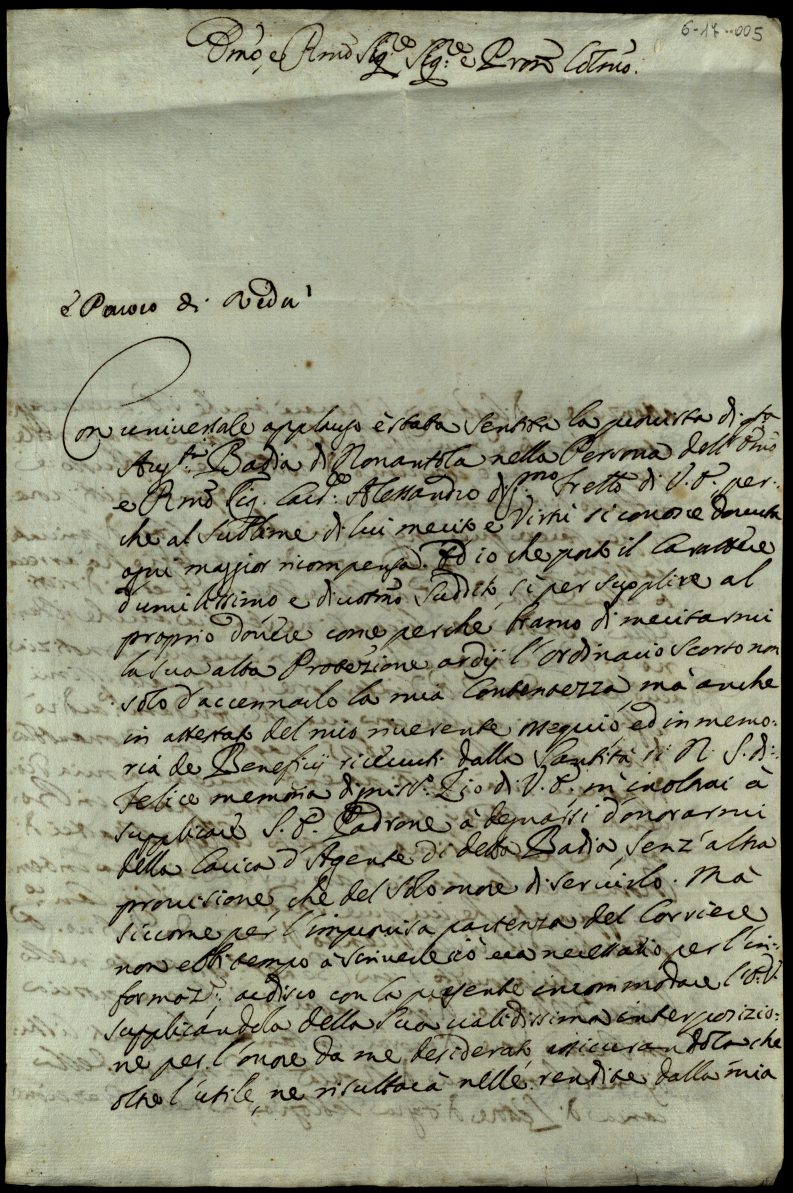 6-17-005
Emo, e Rmo Sigre Sigre e Prone Colmo.
è Paroco di Redù
Con universale applauso è stata sentita la provista di qsta
Augta Badia di Nonantola nella Persona dell' Emo
e Rmo Sig. Card. Alessandro degmo Frello di V. E., per-
che al sublime di lui merito e Virtù si conosce dovuta
ogni maggior ricompensa. Ed io che porto il Carattere
d'umilissimo e divotmo Suddito, sì per supplire al
proprio dovere come perche bramo di meritarmi
la sua alta Protezione ardij l'Ordinario scorso non
solo d'accennarlo la mia Contentezza, mà anche
in attestato del mio riverente ossequio, ed in memo-
ria de Beneficij ricevuti dalla Santità di N. S. di
felice memoria Zio di V. E. m'inoltrai à
supplicare S. E. Padrone à degnarsi d'onorarmi
della Carica d'Agente di detta Badia, senz'altra
provisione, che del solo onore di servirlo. Mà
siccome per l'improvisa partenza del Corriere
non ebbi tempo à scrivere ciò era necessario per l'in-
formaz.e, ardisco con la presente incommodare l'E.V.
supplicandola della Sua validissima interposizio-
ne per l'onore da me desiderato assicurandola che
oltre l'utile, ne risultarà nelle rendite dalla mia